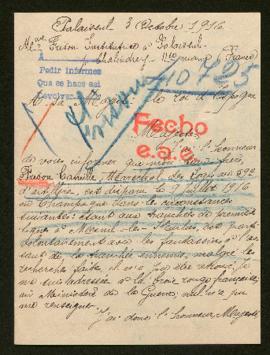 Palaiseul 3 Octobre 1916
Melle Puson Institutrice à Palaiseul
Hte Marne France
A
Pedir informes
Que se haga así
10725
A sa Majesté le roi d'Espagne
Fecho
e.s.c.
Majesté
J'ai l'honneur
de vous informer que mon
Camille Maréchal des Logis au
d'artillerie, est disparu le 9 juillet 1916
en Champagne dans les circonstances
suivantes étant aux tranchées de première
ligne à Mesnil-les-Hurlus, est parti
volontairement avec les fantassins à l'as
saut de la tranchée ennemie, malgré les
recherches faites, il n'a pu être retrouvé. Je
me suis adressée à la Croix rouge française,
au Ministère de la Guerre, nul n'a pu
me renseigner.
J'ai donc l'honneur Majesté